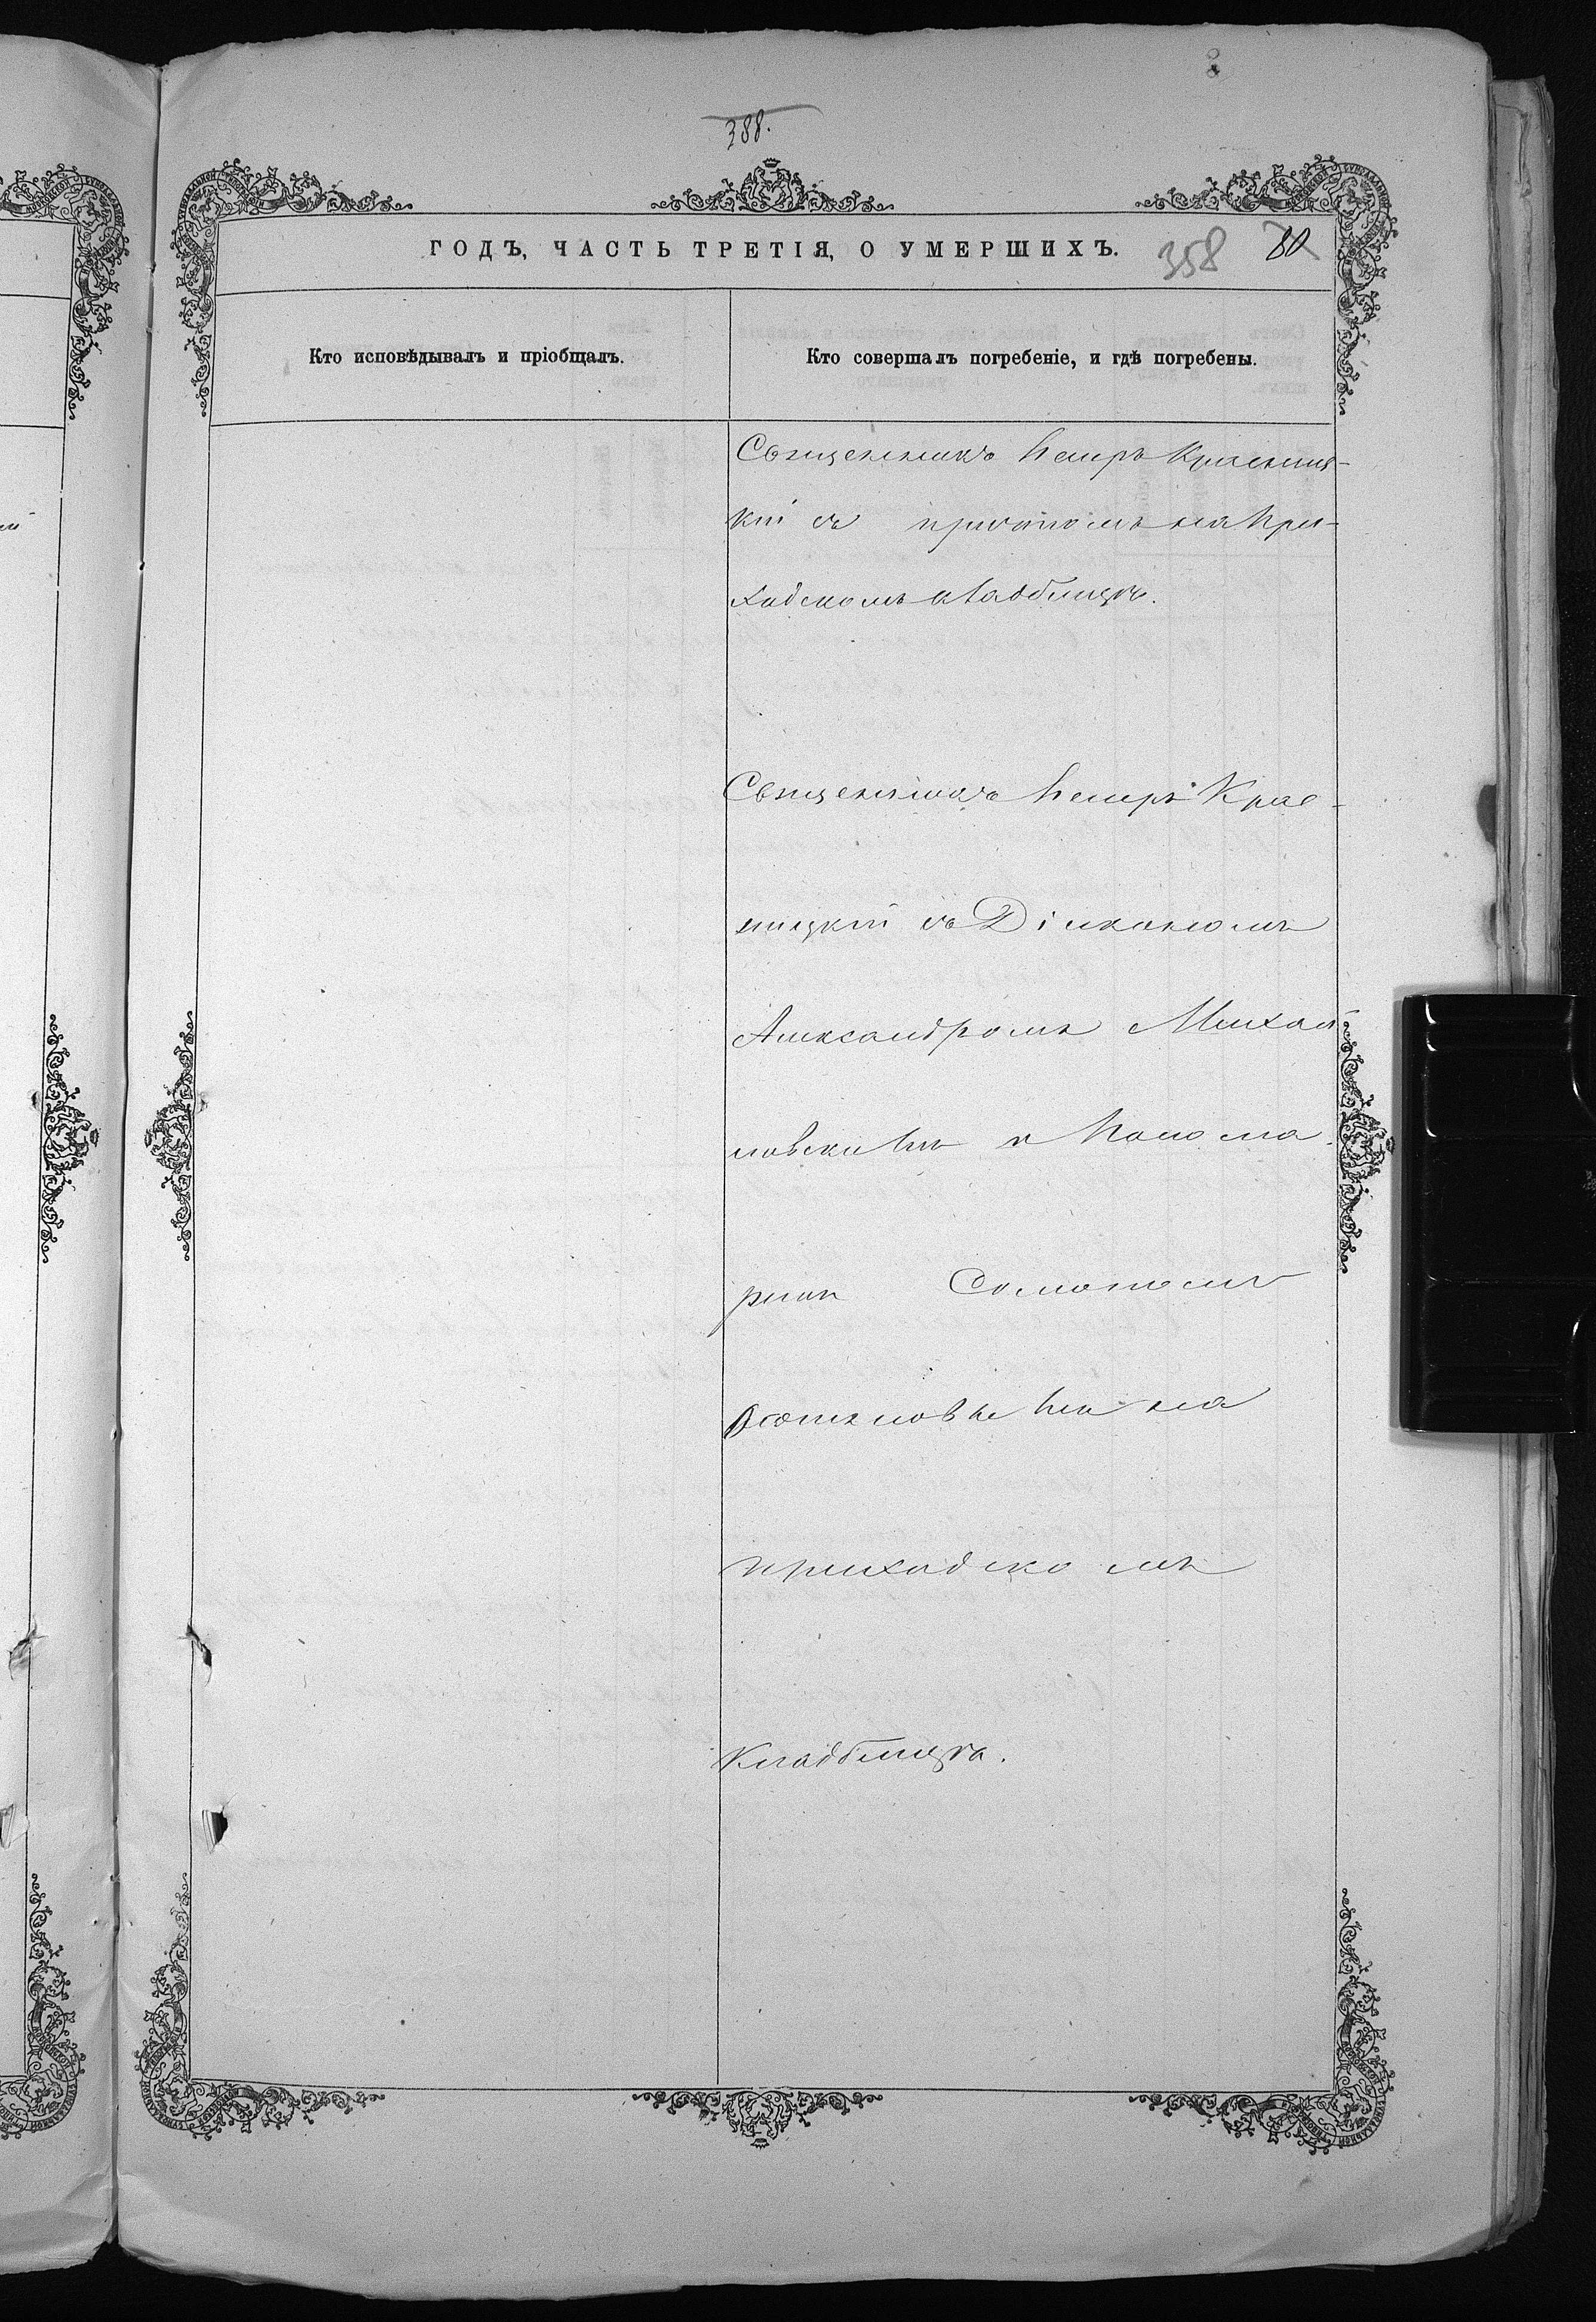 388.
ГОДЪ, ЧАСТЬ ТРЕТІЯ, О УМЕРШИХЪ.
358 80
Кто исповѣдывалъ и пріобщалъ.
Кто совершалъ погребеніе, и гдѣ погребены.
Священникъ Петръ Красниц-
кій съ причтомъ на При-
ходскомъ кладбищѣ.
Священникъ Петръ Крас-
ницкій съ Діакономъ
Александромъ Михай
ловскимъ и Понома
ремъ Соломономъ
на
приходскомъ
Кладбищѣ.